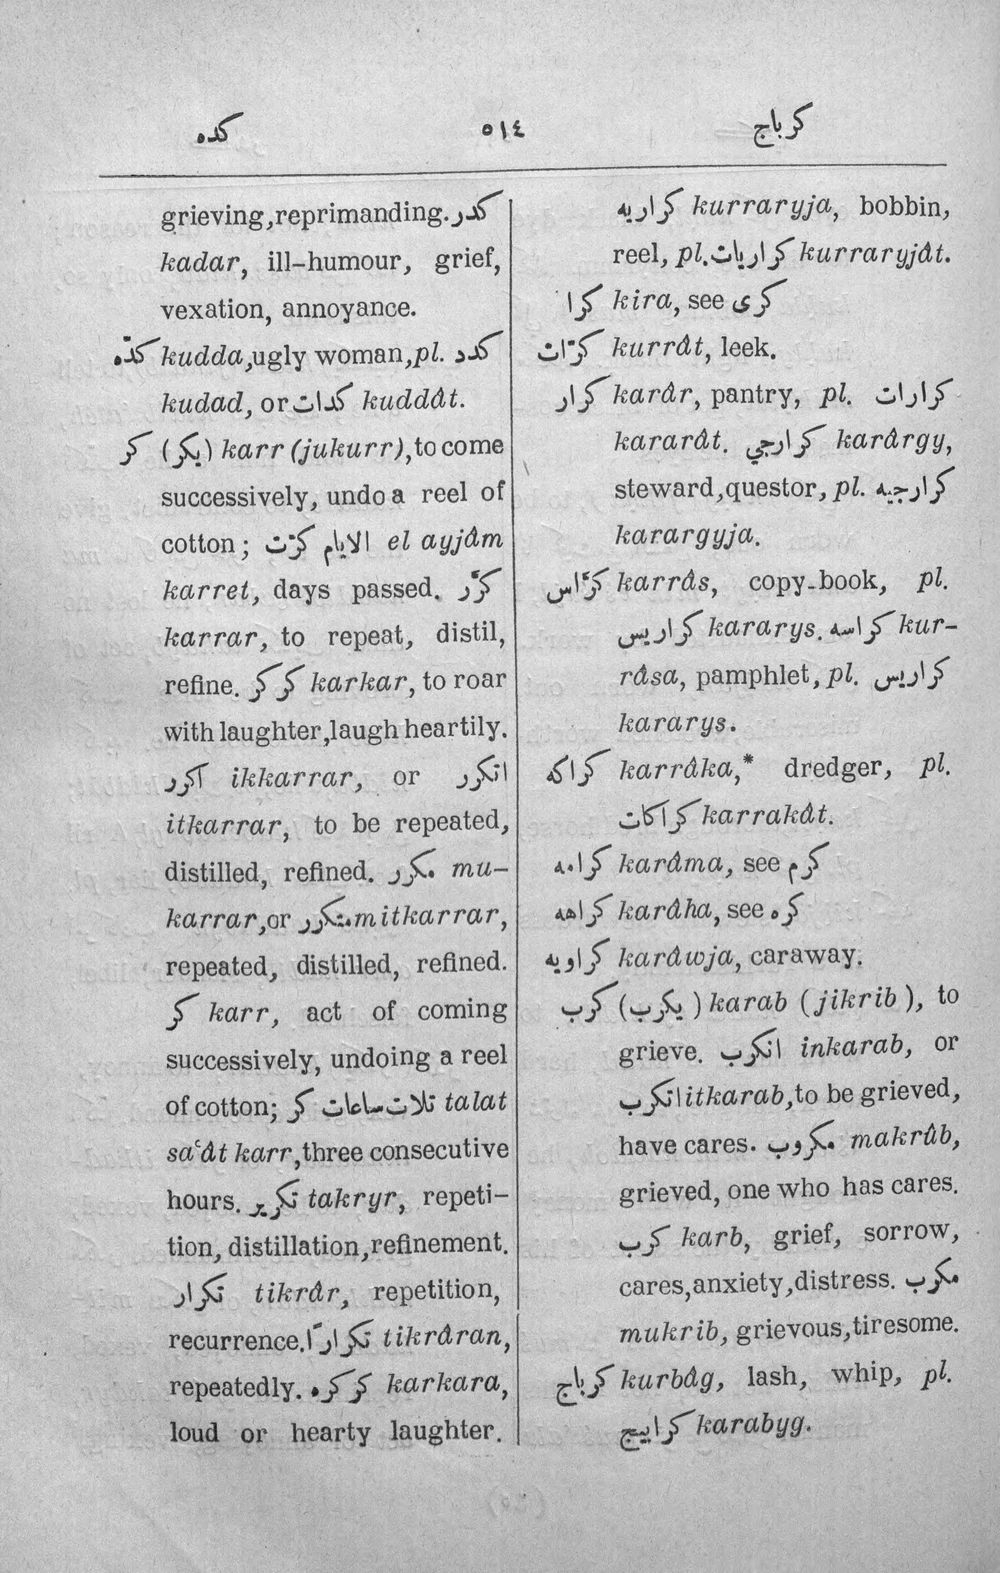 كده ٥١٤ كرباج
grieving, reprimanding. كدر
kadar, ill-humour, grief,
vexation, annoyance.
كدّه kudda, ugly woman, pl. كدد
kudad, or كدات kuddât.
كر (يكر) karr (jukurr), to come
successively, undo a reel of
cotton; الايام كرّت el ayjâm
karret, days passed. كرّر
karrar, to repeat, distil,
refine. كركر karkar, to roar
with laughter, laugh heartily.
اكرر ikkarrar, or اتكرر
itkarrar, to be repeated,
distilled, refined. مكرر mu-
karrar, or متكرر mitkarrar,
repeated, distilled, refined.
كر karr, act of coming
successively, undoing a reel
of cotton; تلات ساعات كر talat
saʿât karr, three consecutive
hours. تكرير takryr, repeti-
tion, distillation, refinement.
تكرار tikrâr, repetition,
recurrence. تكرارًا tikrâran,
repeatedly. كركره karkara,
loud or hearty laughter.
كراريه kurraryja, bobbin,
reel, pl. كراريات kurraryjât.
كرا kira, see كرى
كرّات kurrât, leek.
كرار karâr, pantry, pl. كرارات
kararât. كرارجي karârgy,
steward, questor, pl. كرارجيه
karargyja.
كرّاس karrâs, copy-book, pl.
كراريس kararys. كراسه kur-
râsa, pamphlet, pl. كراريس
kararys.
كراكه karrâka,* dredger, pl.
كراكات karrakât.
كرامه karâma, see كرم
كراهه karâha, see كره
كراويه karâwja, caraway.
كرب (يكرب) karab (jikrib), to
grieve. انكرب inkarab, or
اتكرب itkarab, to be grieved,
have cares. مكروب makrûb,
grieved, one who has cares.
كرب karb, grief, sorrow,
cares, anxiety, distress. مكرب
mukrib, grievous, tiresome.
كرباج kurbâg, lash, whip, pl.
كرابيج karabyg.